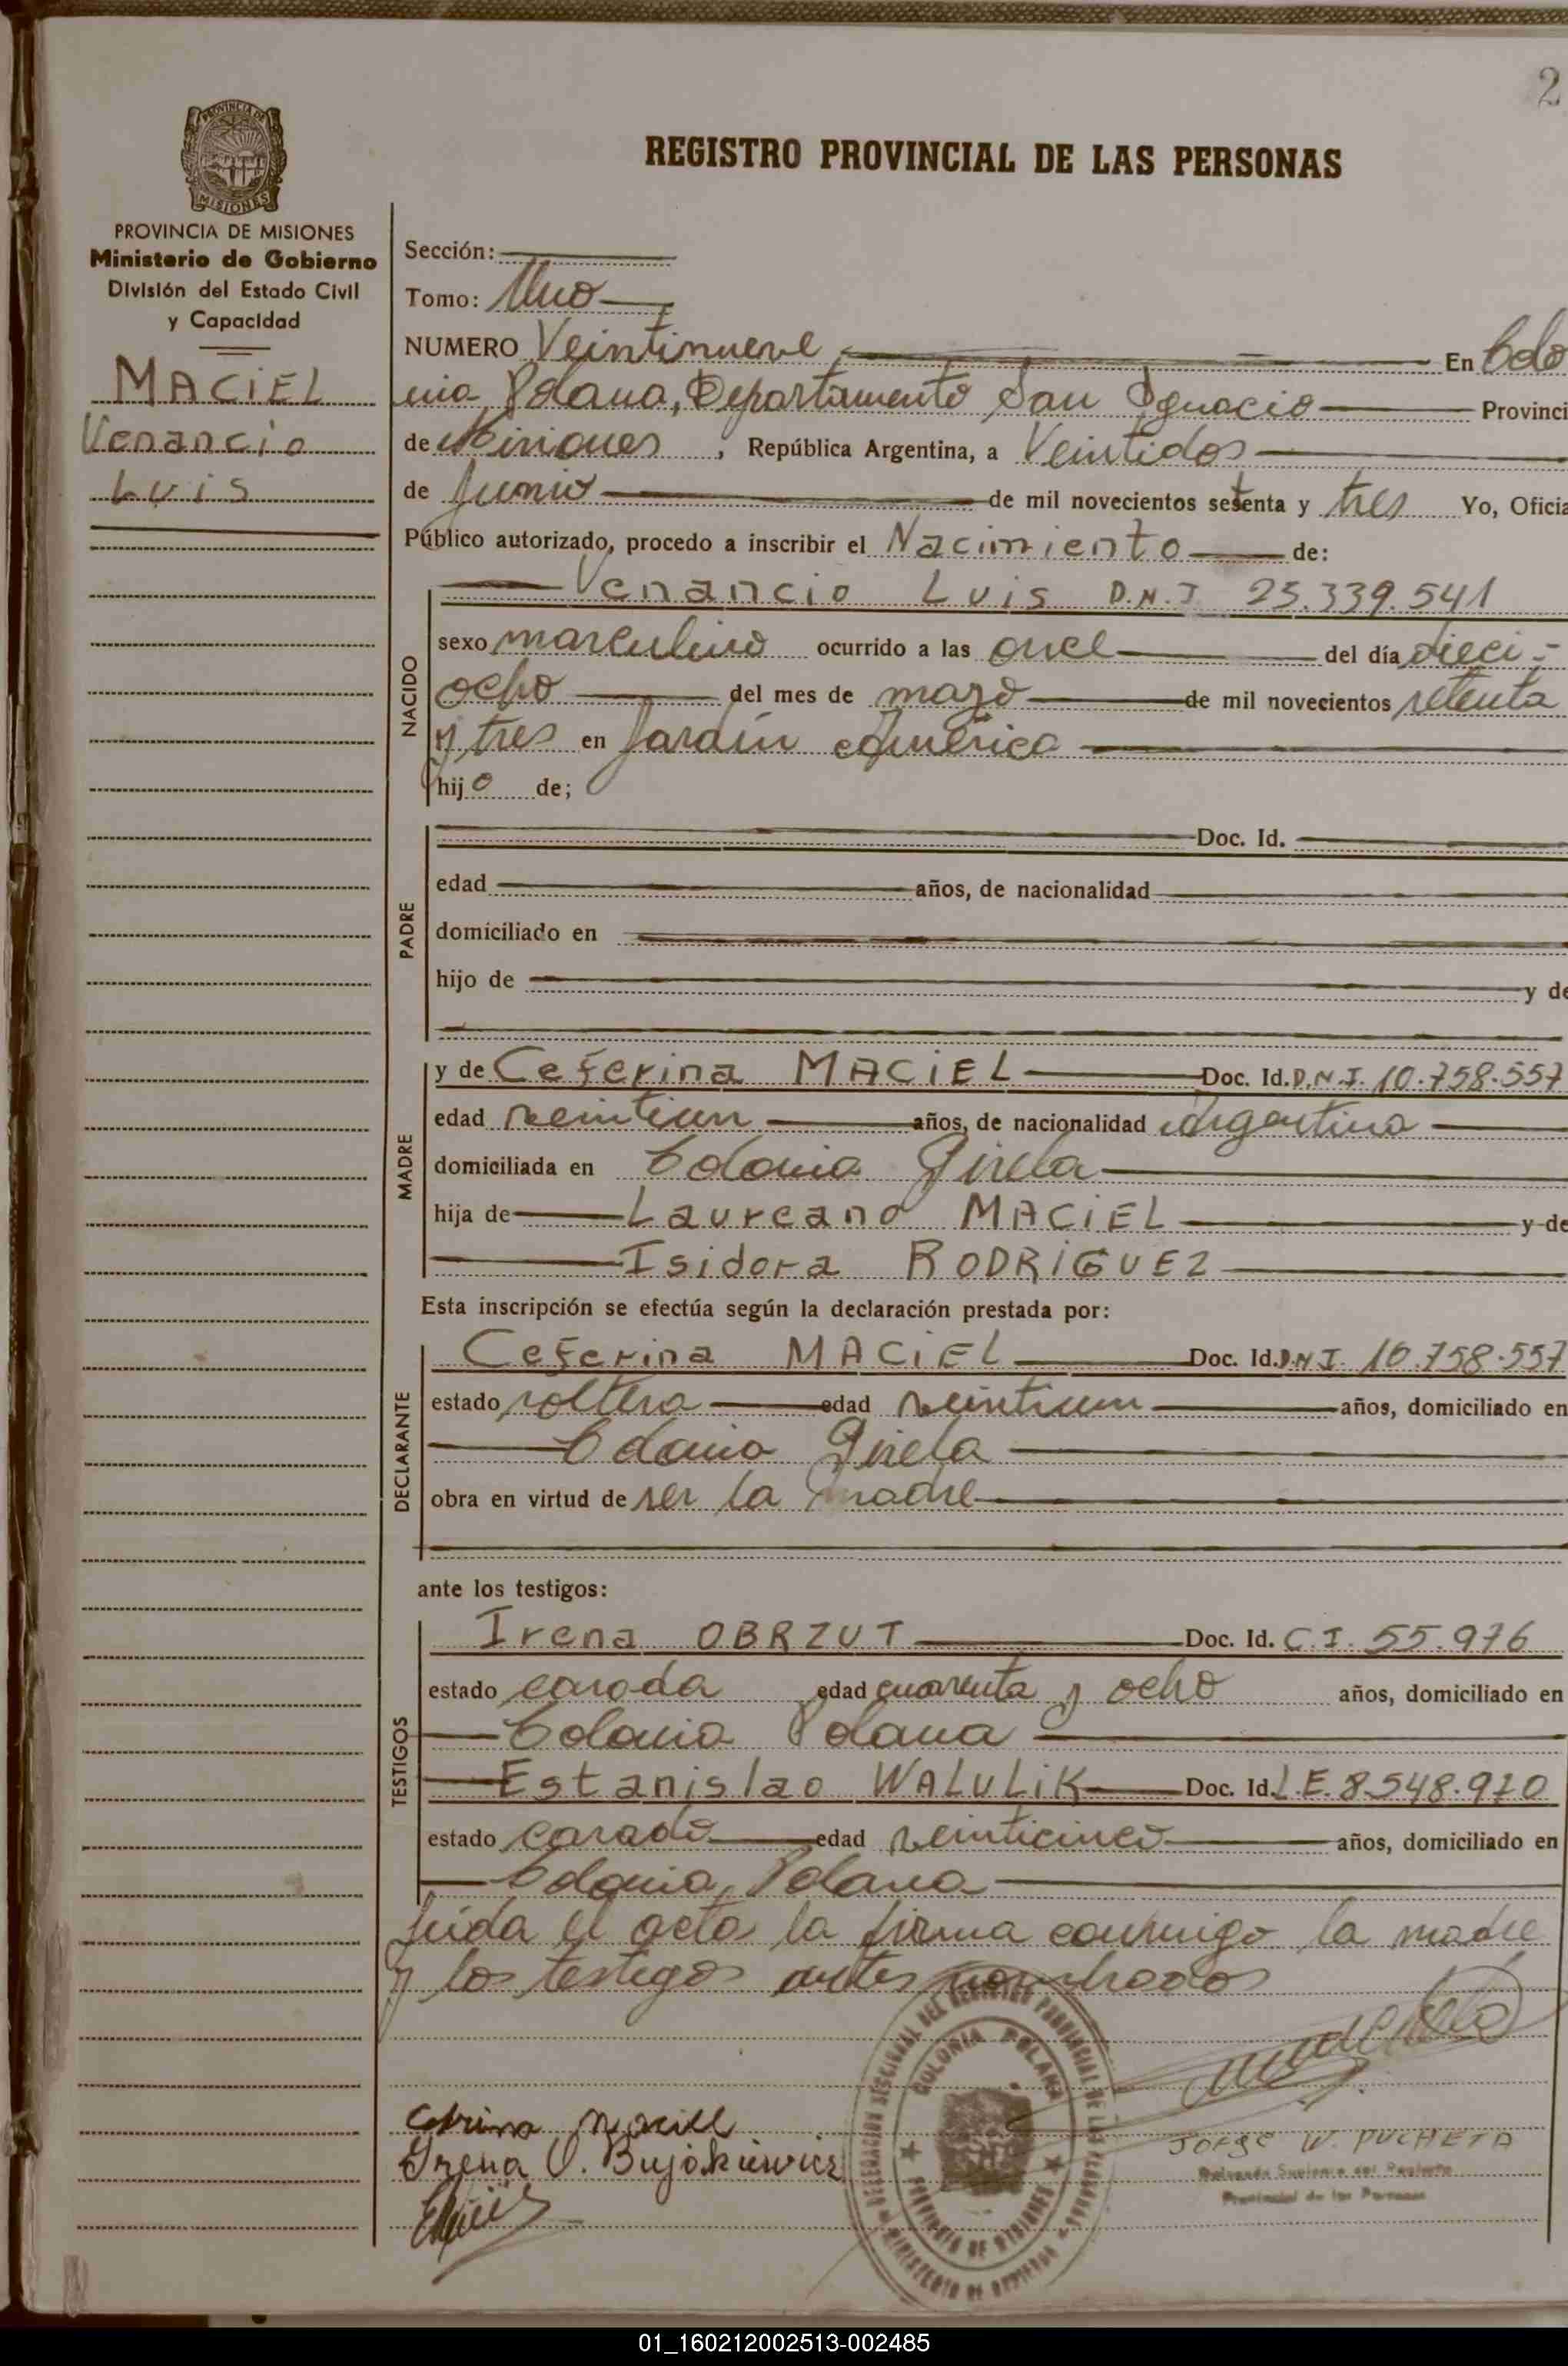 2
PROVINCIA DE
MISIONES
PROVINCIA DE MISIONES
Ministerio de Gobierno
División del Estado Civil
y Capacidad
MACIEL
Venancio
Luis
REGISTRO PROVINCIAL DE LAS PERSONAS
Sección:
Tomo: Uno
NUMERO Veintinueve En Colo
nia Polana, Departamento San Ignacio Provinci
de Misiones, República Argentina, a Veintidos
de Junio de mil novecientos setenta y tres Yo, Oficia
Público autorizado, procedo a inscribir el Nacimiento de:
Venancio Luis D.N.I 23.339.541
NACIDO
sexo masculino ocurrido a las once del día dieci-
ocho del mes de mazo de mil novecientos setenta
y tres en Jardín América
hijo de;
PADRE
Doc. Id.
edad años, de nacionalidad
domiciliado en
hijo de y de
MADRE
y de Ceferina MACIEL Doc. Id. D.N.I. 10.758.557
edad veintiun años, de nacionalidad Argentina
domiciliada en Colonia Gisela
hija de Laureano MACIEL y de
Isidora RODRIGUEZ
Esta inscripción se efectúa según la declaración prestada por:
DECLARANTE
Ceferina MACIEL Doc. Id. D.N.I. 10.758.557
estado soltera edad veintiun años, domiciliado en
Colonia Gisela
obra en virtud de ser la madre
ante los testigos:
TESTIGOS
Irena OBRZUT Doc. Id. C.I. 55.976
estado casada edad cuarenta y ocho años, domiciliado en
Colonia Polana
Estanislao WALULIK Doc. Id. L.E. 8.548.970
estado casado edad veinticinco años, domiciliado en
Colonia Polana
Leída el acta la firma conmigo la madre
y los testigos antes nombrados
COLONIA POLANA
PROVINCIA DE MISIONES
MINISTERIO DE GOBIERNO
Irena O. Bujakiewicz
JORGE W. PUCHETA
Provincial de las Personas
01_160212002513-002485